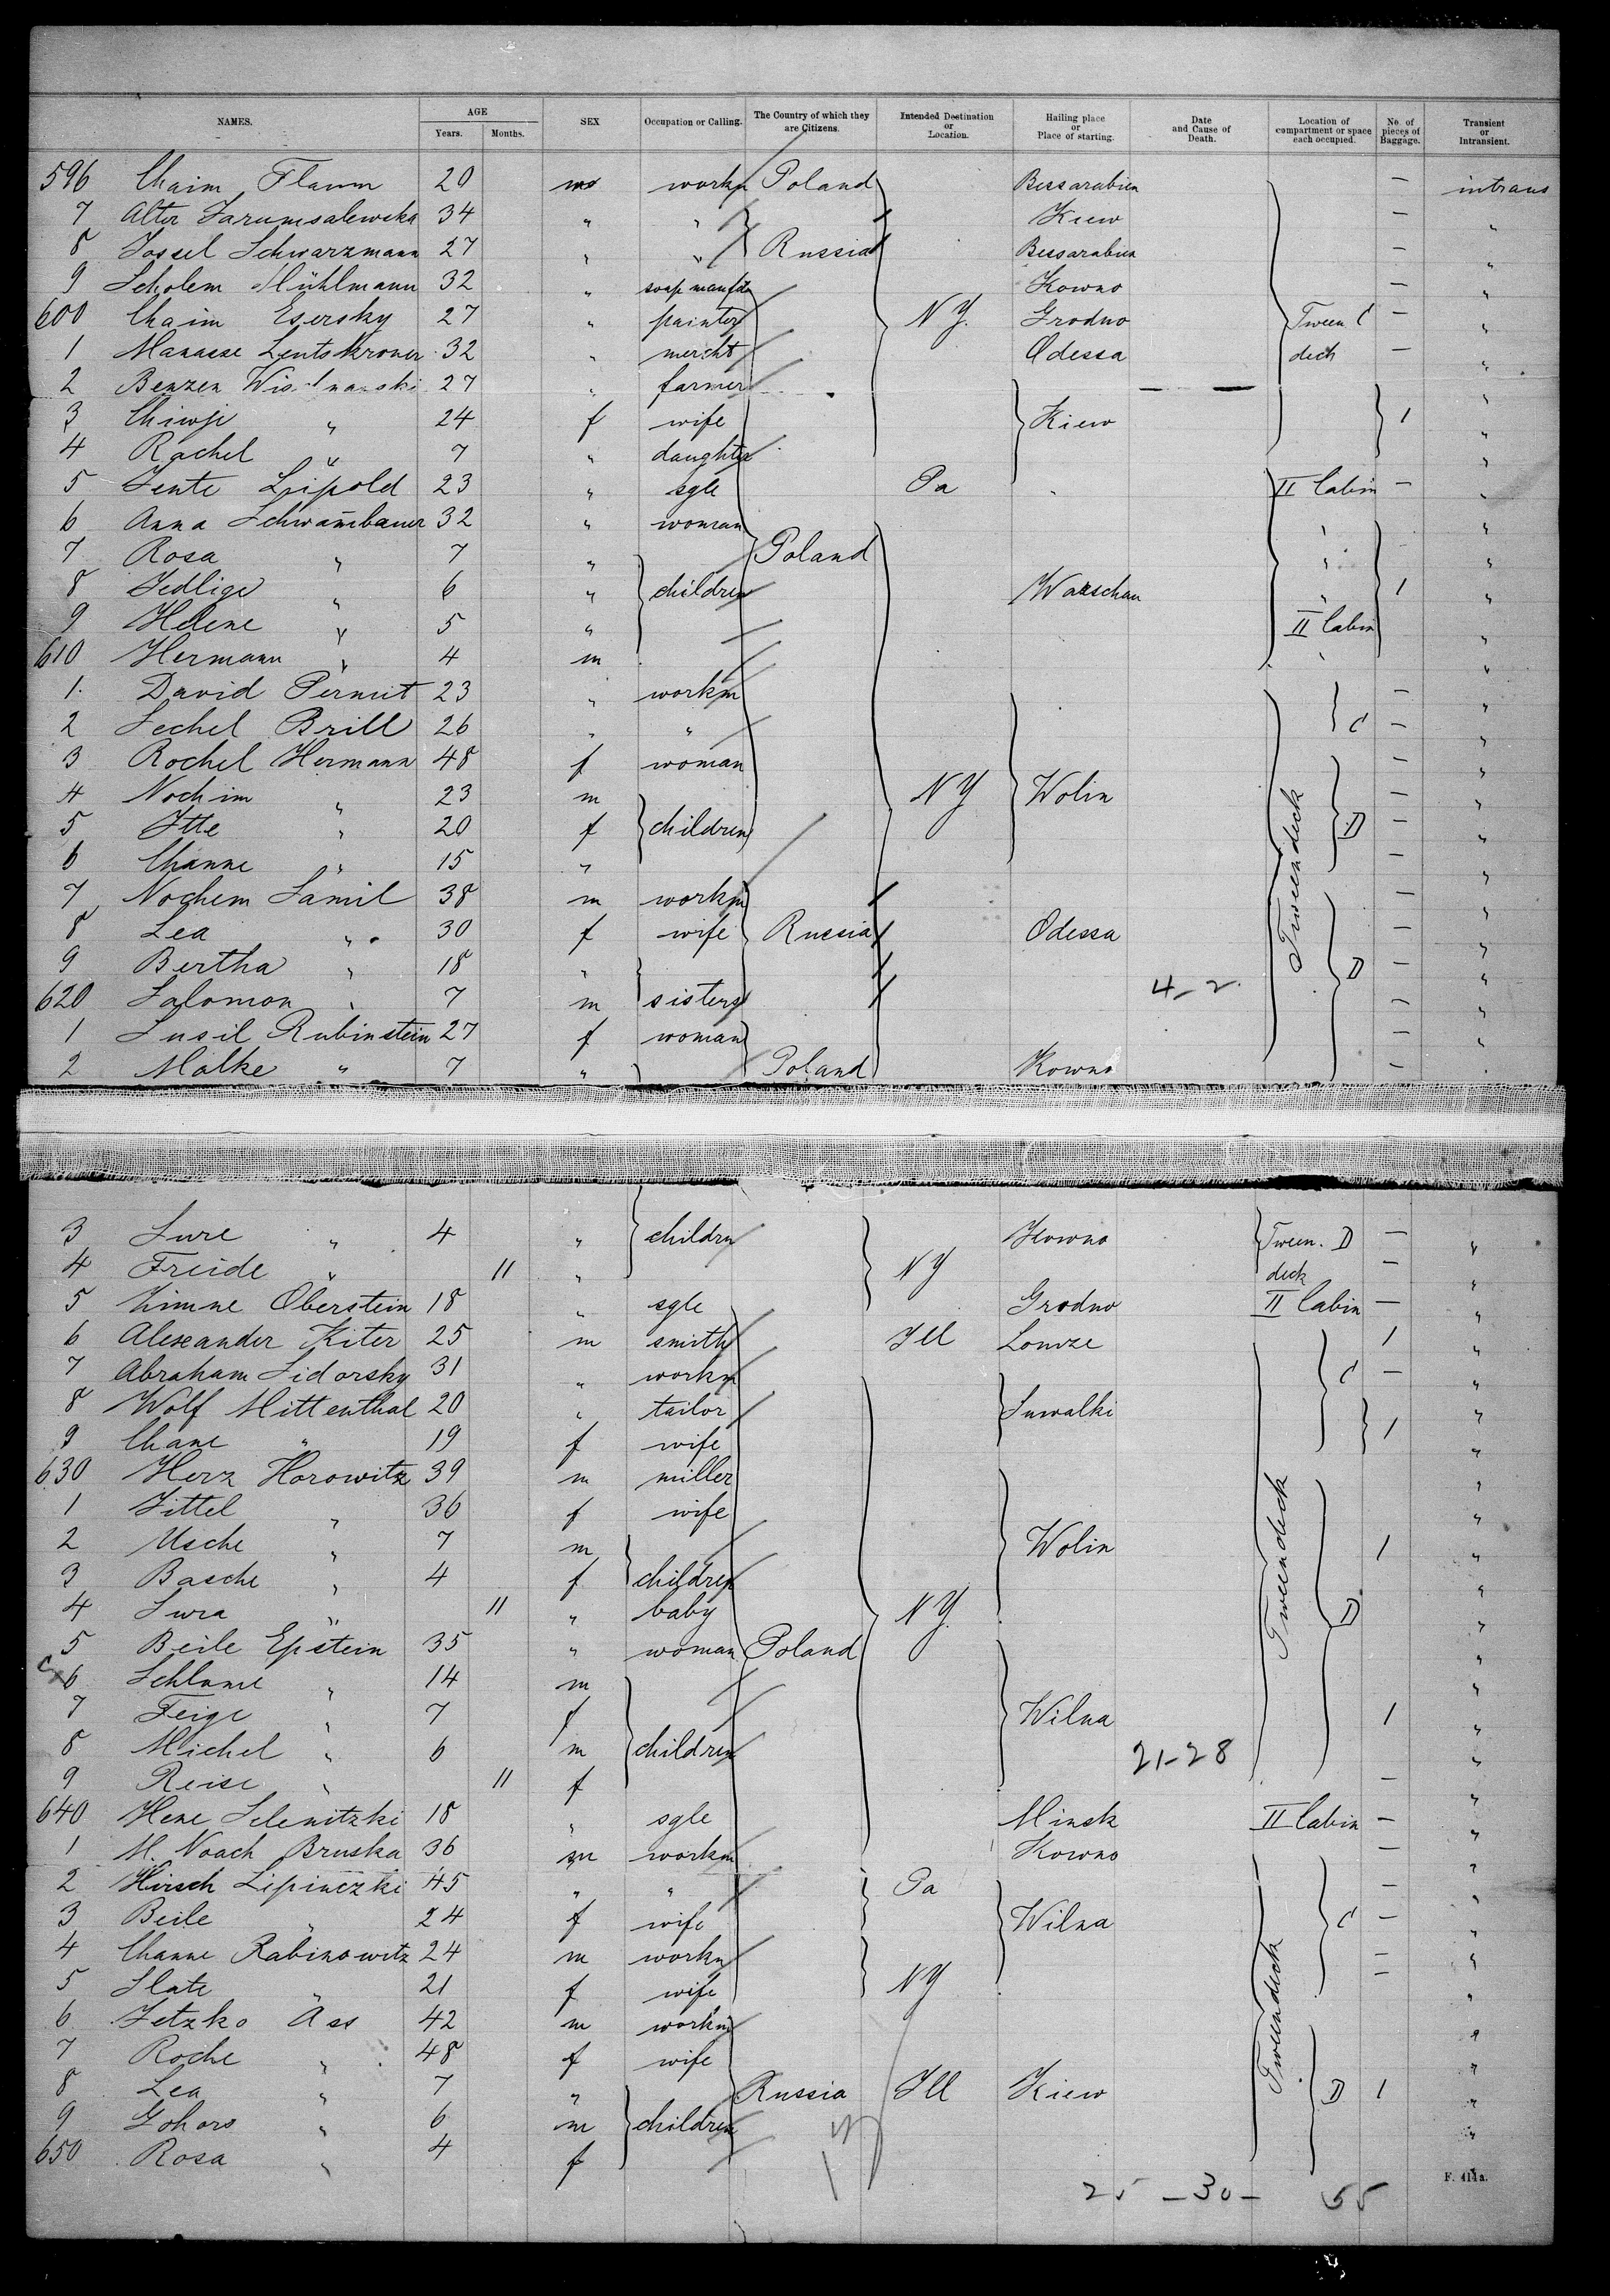 NAMES. AGE Years. Months. SEX Occupation or Calling. The Country of which they are Citizens. Intended Destination or Location. Hailing place or Place of starting. Date and Cause of Death. Location of compartment or space each occupied. No. of pieces of Baggage. Transient or Intransient.
596 Chaim Flamm 20 m workm Poland Bessarabien — intrans
7 Alter 34 " " Kiew — "
8 Jossel Schwarzmann 27 " " Russia Bessarabien — "
9 Scholem Mühlmann 32 " soap manfct Kowno — "
600 Chaim Esersky 27 " painter NY. Grodno Tween C — "
1 Manasse Lentskroner 32 " mercht Odessa deck — "
2 Benzen 27 " farmer — — "
3 Chiwje " 24 f wife Kiew 1 "
4 Rachel " 7 " daughter "
5 Jente Lipold 23 " sgle Pa " II Cabin — "
6 Anna Schwambauer 32 " woman " "
7 Rosa " 7 " Poland " "
8 Jedlige " 6 " children Warschau " 1 "
9 Helene " 5 " II Cabin "
610 Hermann " 4 m " "
1 David Permut 23 " workm — "
2 Sechel Brill 26 " " C — "
3 Rochel Hermann 48 f woman — "
4 Nochim " 23 m NY Wolin — "
5 Itte " 20 f children Tweendeck D — "
6 Channe " 15 " — "
7 Nochem Samil 38 m workm — "
8 Lea " 30 f wife Russia Odessa — "
9 Bertha " 18 " D — "
620 Salomon " 7 m sisters 4-2. — "
1 Susil Rubinstein 27 f woman — "
2 Malke " 7 " Poland Kowno — "
3 Sure " 4 " childrn Kowno Tween. D — "
4 Freide " 11 " NY deck — "
5 Oberstein 18 " sgle Grodno II Cabin — "
6 Alexander Kiter 25 m smith Ill Lomze 1 "
7 Abraham Sidorsky 31 " workm C — "
8 Wolf Mittenthal 20 " tailor Suwalki "
9 Chane " 19 f wife 1 "
630 Herz Horowitz 39 m miller "
1 Zittel " 36 f wife "
2 Usche " 7 m Wolin Tweendeck 1 "
3 Basche " 4 f children "
4 Sura " 11 " baby NY. D "
5 Beile Epstein 35 " woman Poland "
6 Schlome " 14 m "
7 Feige " 7 f Wilna 1 "
8 Michel " 6 m children 21-28 "
9 Reise " 11 f — "
640 Hene Selenitzki 18 " sgle Minsk II Cabin — "
1 M. Noach Bruska 36 m workm Kowno — "
2 Hirsch Lipinczki 45 " " Pa — "
3 Beile " 24 f wife Wilna C — "
4 Channe Rabinowitz 24 m workm — "
5 Slate " 21 f wife NY Tweendeck — "
6 Jetzko Ass 42 m workm "
7 Roche " 48 f wife "
8 Lea " 7 " Russia Ill Kiew D 1 "
9 " 6 m children "
650 Rosa " 4 f "
F. 414a.
25 — 30 — 55